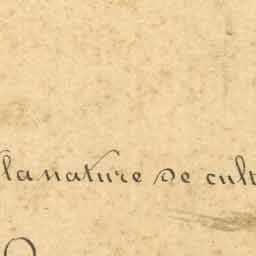 la nature de cult